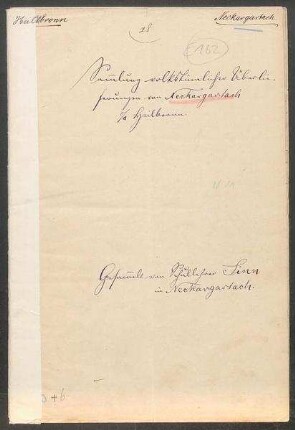 Heilbronn
Neckargartach.
28
162
Samlung volkstümlicher Überlie-
ferungen von Neckargartach
Heilbronn
Gesammelt von Schullehrer Sinn
in Neckargartach.